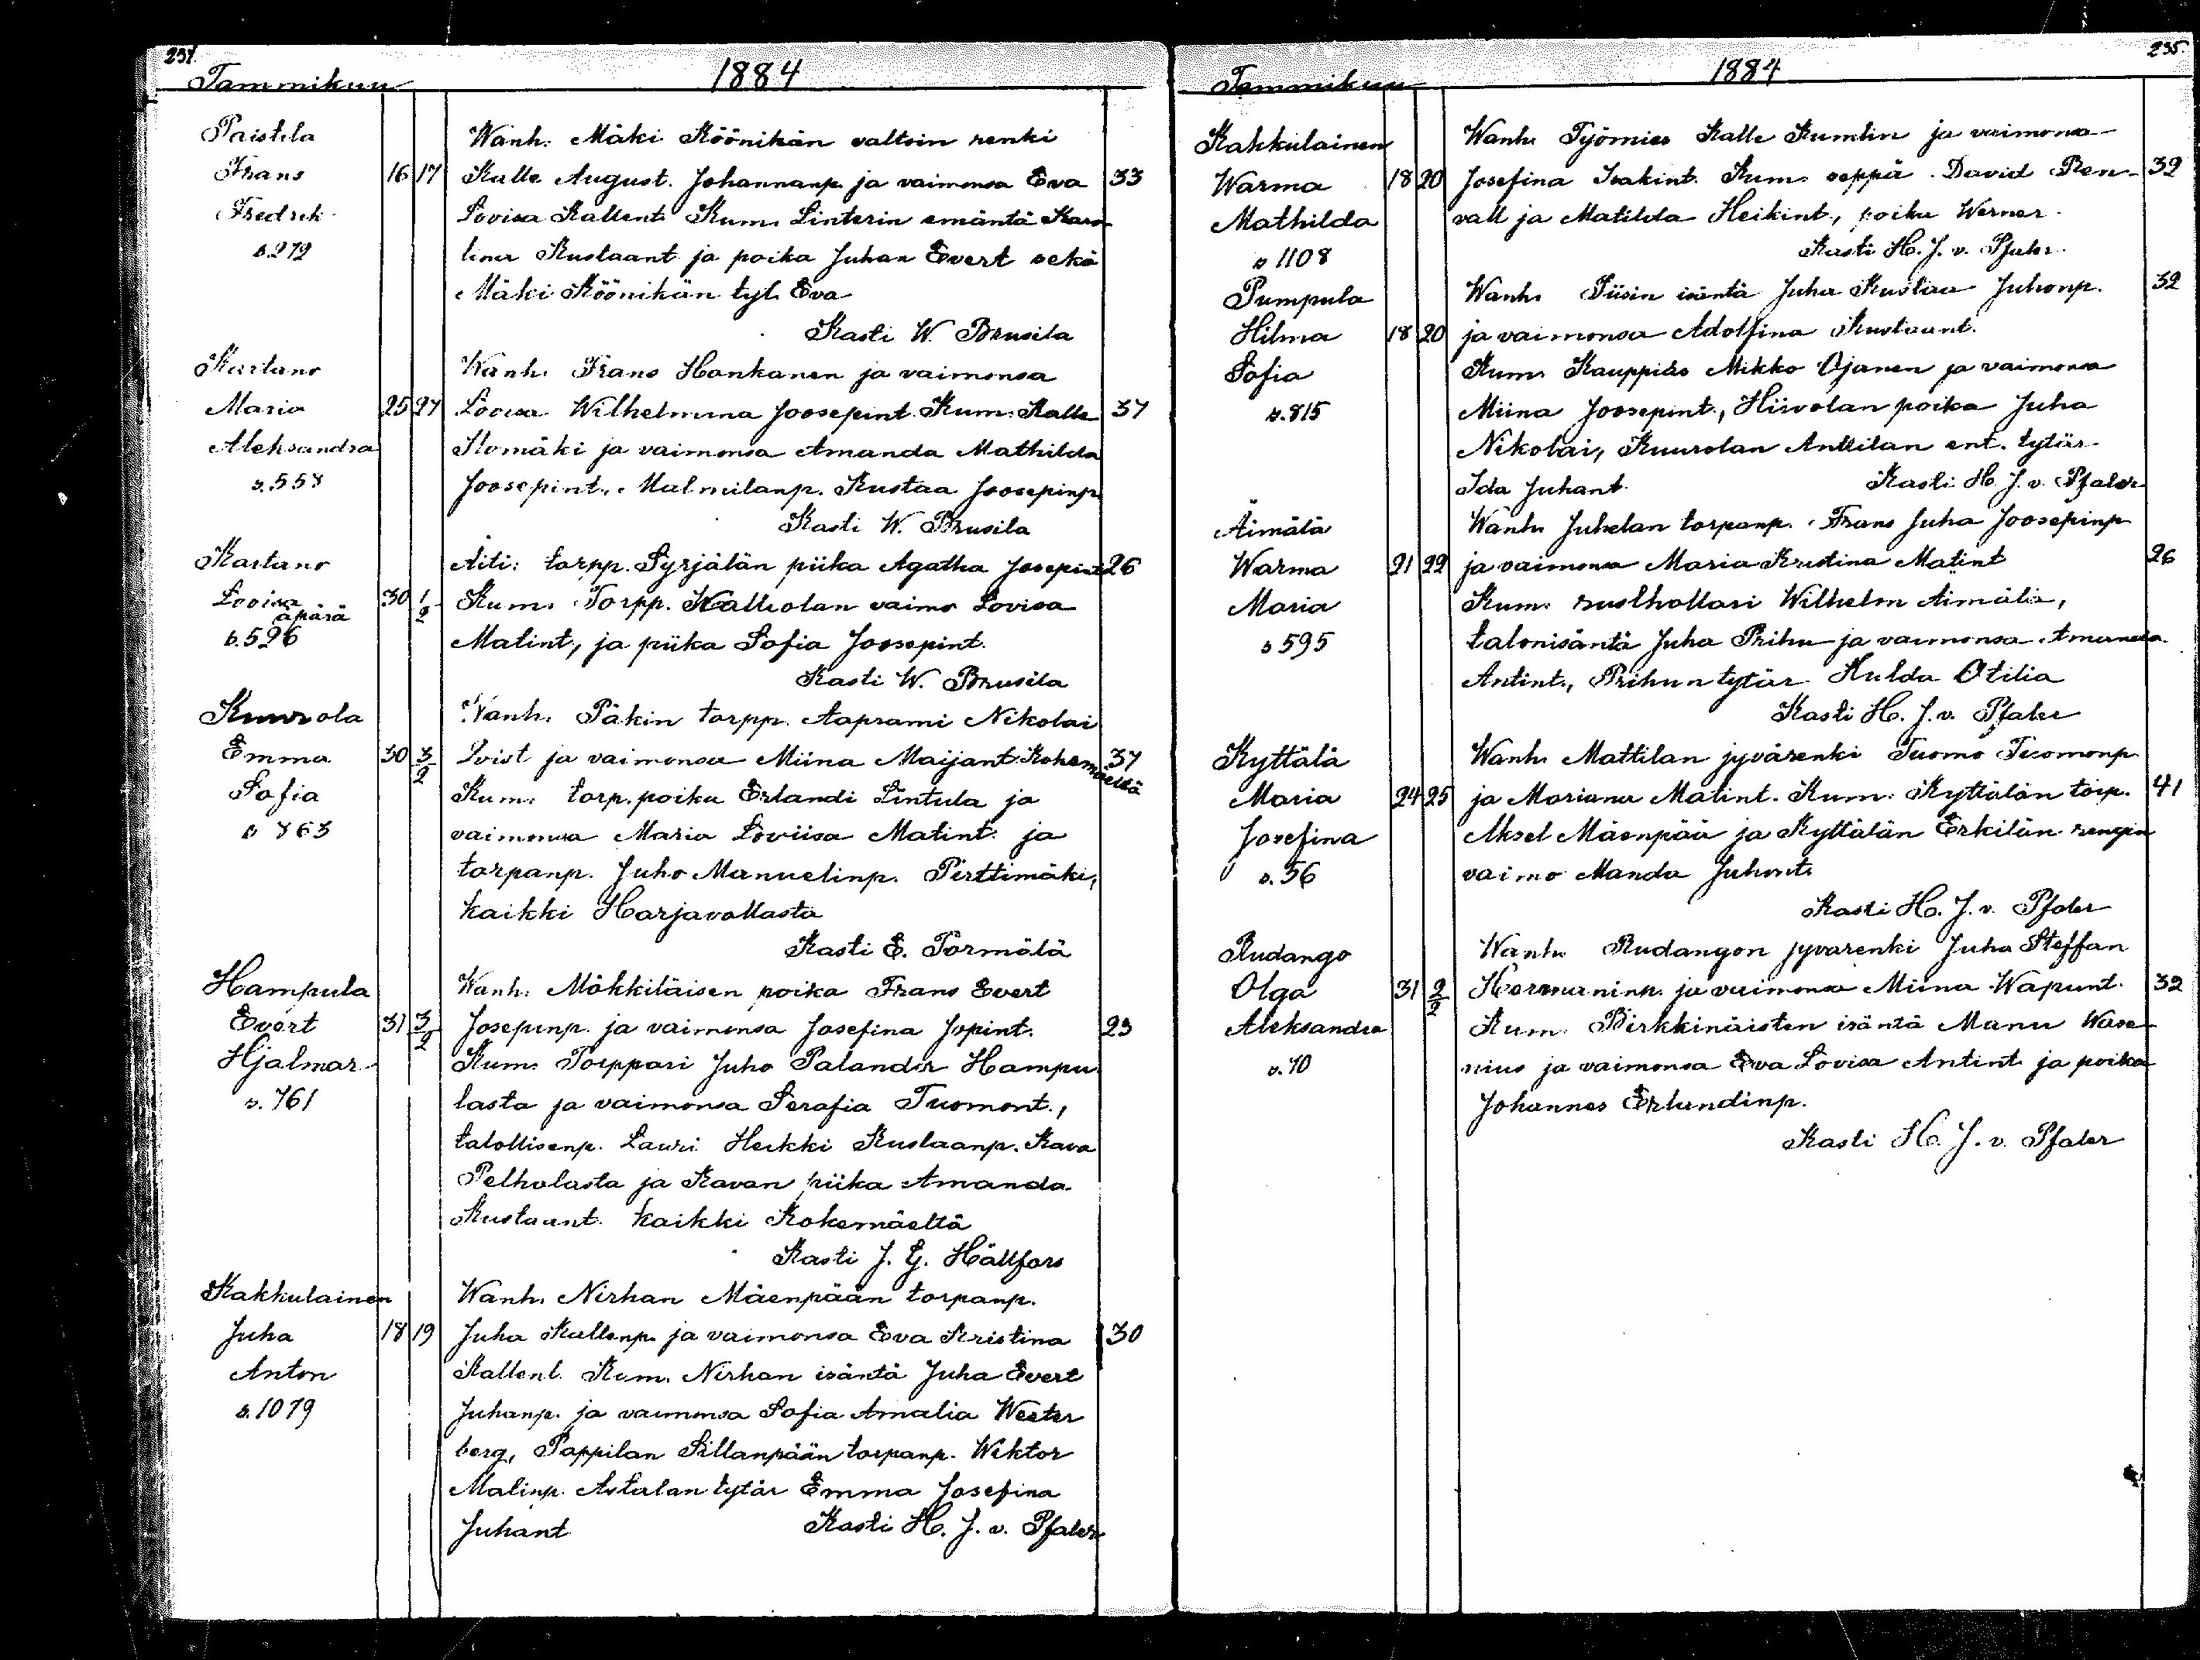 234.
Tammikuu 1884
Paistila Wanh. Mäki Köönikän valtoin renki
Frans 16 17 Kalle August. Johannanp. ja vaimonsa Eva 33
Fredrik Lovisa Kallent. Kum. Linterin emäntä Karo-
s. 279 lina Kustaant. ja poika Juhan Evert sekä
Mäki Köönikän tyt. Eva
Kasti W. Brusila
Kartano Wanh. Frans Honkanen ja vaimonsa
Maria 25 27 Lovisa Wilhelmina Joosepint. Kum. Kalle 37
Aleksandra Ilomäki ja vaimonsa Amanda Mathilda
s. 558 Joosepint., Malmilanp. Kustaa Joosepinp.
Kasti W. Brusila
Kartano Äiti: torpp. Syrjälän piika Agatha Josepint. 26
Lovisa 30 1/2 Kum. Torpp. Walliolan vaimo Lovisa
äpärä
s. 526 Matint., ja piika Sofia Joosepint.
Kasti W. Brusila
Kuurola Wanh. Päkin torpp. Aaprami Nikolai
Emma 30 3/2 Qvist ja vaimonsa Miina Maijant. Kokemäeltä 37
Sofia Kum. torp. poika Erlandi Lintula ja
s 763 vaimonsa Maria Loviisa Matint. ja
torpanp. Juho Manuelinp. Pirttimäki,
kaikki Harjavallasta
Kasti E. Törmälä
Hampula Wanh. Mökkiläisen poika Frans Evert
Evert 31 3/2 Josepinp. ja vaimonsa Josefina Jopint. 23
Hjalmar Kum. Torppari Juho Palander Hampu-
s. 761 lasta ja vaimonsa Serafia Tuomont.,
talollisenp. Lauri Heikki Kustaanp. Kava
Pelholasta ja Kavan piika Amanda
Kustaant. kaikki Kokemäeltä
Kasti J. G. Hällfors
Kakkulainen Wanh. Nirhan Mäenpään torpanp.
Juha 18 19 Juha Kallenp. ja vaimonsa Eva Kristina 30
Anton Kallent. Kum. Nirhan isäntä Juha Evert
s. 1079 Juhanp. ja vaimonsa Sofia Amalia Wester
berg, Pappilan Sillanpään torpanp. Wiktor
Matinp. Astalan tytär Emma Josefina
Juhant Kasti H. J. v. Pfaler
235.
Tammikuu 1884
Kakkulainen Wanh. Työmies Kalle Kumlin ja vaimonsa
Warma 18 20 Josefina Isakint. Kum. seppä David Ren- 32
Mathilda vall ja Matilda Heikint., poika Werner
s 1108 Kasti H. J. v. Pfaler.
Pumpula Wanh. Piisin isäntä Juha Kustaa Juhonp. 32
Hilma 18 20 ja vaimonsa Adolfina Kustaant.
Sofia Kum. Kauppias Mikko Ojanen ja vaimonsa
s. 815 Miina Joosepint., Hiivolan poika Juha
Nikolai, Kuurolan Anttilan ent. tytär
Ida Juhant. Kasti H. J. v. Pfaler
Äimälä Wanh. Juhelan torpanp. Frans Juha Joosepinp
Warma 21 22 ja vaimonsa Maria Kristina Matint 26
Maria Kum. rusthollari Wilhelm Äimälä,
s 595 talonisäntä Juha Prihu ja vaimonsa Amanda
Antint., Prihun tytär Hulda Otilia
Kasti H. J. v. Pfaler
Kyttälä Wanh. Mattilan jyvärenki Tuomo Tuomonp
Maria 24 25 ja Mariana Matint. Kum. Kyttälän torp. 41
Josefina Aksel Mäenpää ja Kyttälän Erkilän rengin
s. 56 vaimo Manda Juhont.
Kasti H. J. v. Pfaler
Rudango Wanh. Rudangon jyvarenki Juha Steffan
Olga 31 2/2 Hermaninp. ja vaimonsa Miina Wapunt. 32
Aleksandra Kum. Pirkkinäisten isäntä Manu Wase-
s. 70 nius ja vaimonsa Eva Lovisa Antint. ja poika
Johannes Erlandinp.
Kasti H. J. v. Pfaler